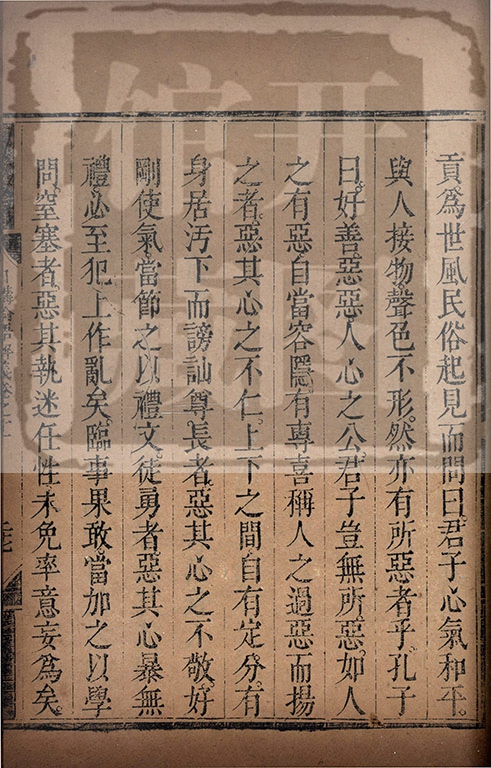 貢爲世風民俗起見而問曰君子心氣和平
與人接物聲色不形然亦有所惡者乎孔子
曰好善惡惡人心之公君子豈無所惡如人
之有惡自當容隱有專喜稱人之過惡而揚
之者惡其心之不仁上下之間自有定分有
身居汚下而謗訕尊長者惡其心之不敬好
剛使氣當節之以禮文徒勇者惡其心暴無
禮必至犯上作亂矣臨事果敢當加之以學
問窒塞者惡其執迷任性未免率意妄爲矣